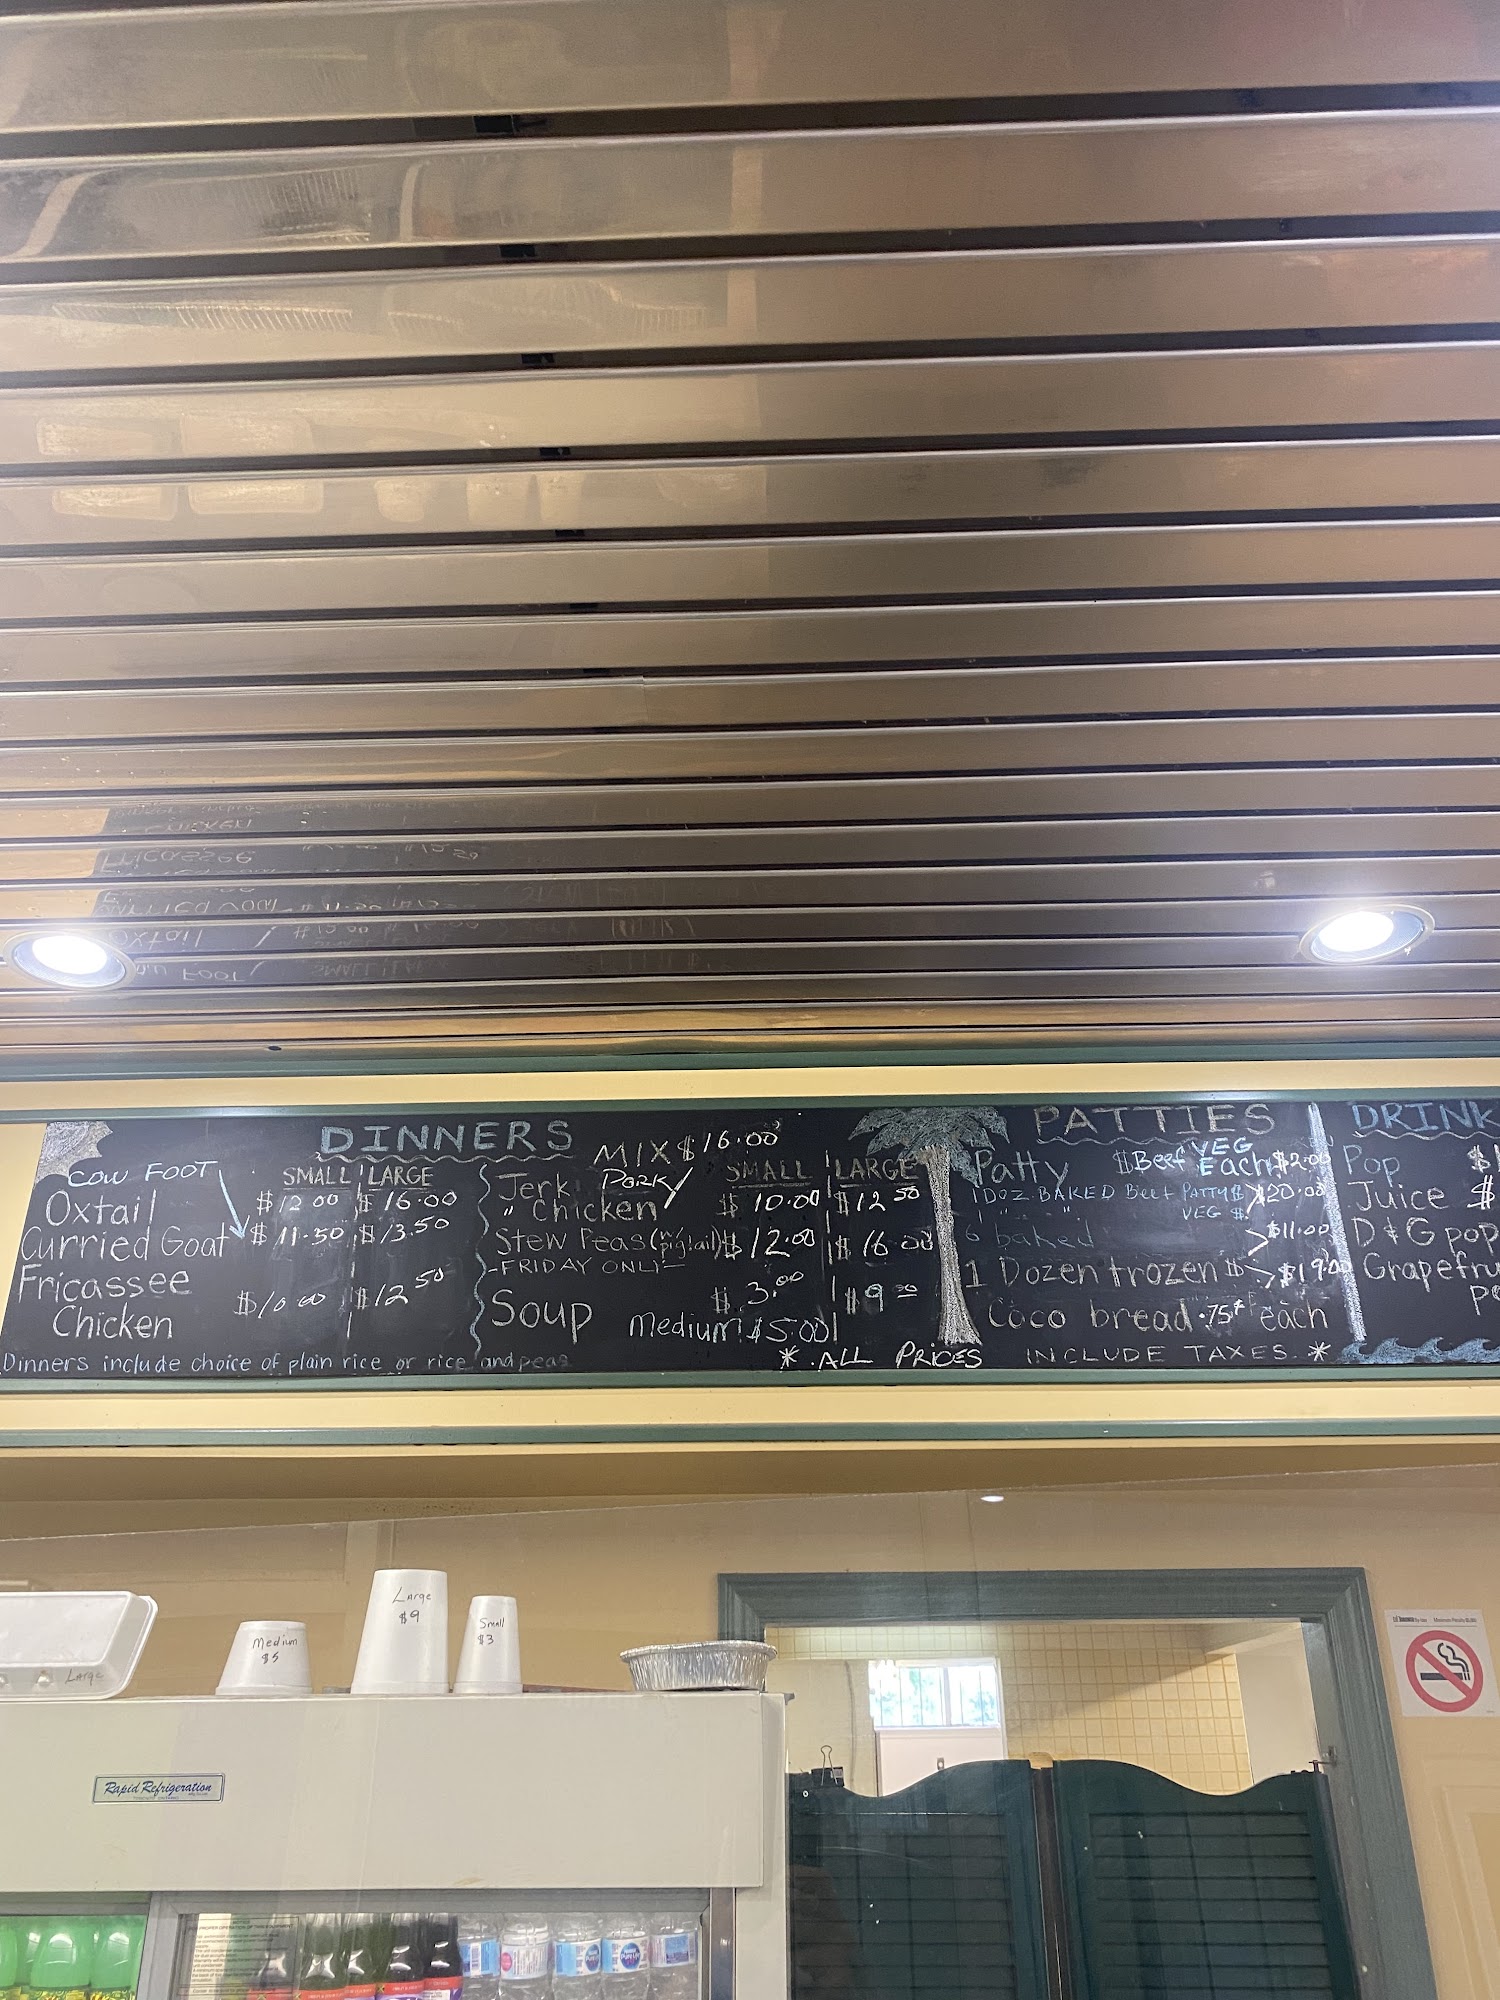 DINNERS
MIX $16.00
COW FOOT
SMALL LARGE
Oxtail $12.00 $16.00
Curried Goat $11.50 $13.50
Fricassee
Chicken $10.00 $12.50
Dinners include choice of plain rice or rice and peas
SMALL LARGE
Jerk Pork/
" Chicken $10.00 $12.50
Stew Peas (w/ pigtail) $12.00 $16.00
-FRIDAY ONLY-
Soup $3.00 $9.00
Medium $5.00
* ALL PRICES INCLUDE TAXES *
PATTIES
VEG
Patty $Beef Each $2.00
1 DOZ. BAKED Beef PATTY $ $20.00
VEG $
6 baked $11.00
1 Dozen frozen $ $19.00
Coco bread .75¢ each
Pop
Juice $
D & G pop
Large
Medium
$5
Large
$9
Small
$3
Rapid Refrigeration